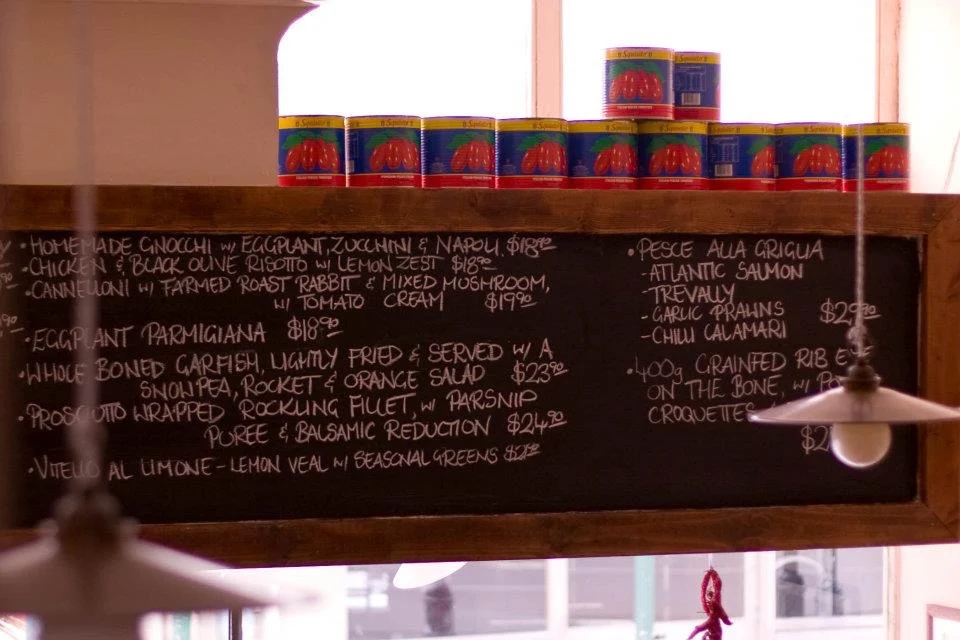 Squisito
Squisito Squisito Squisito Squisito Squisito Squisito Squisito Squisito
• HOMEMADE GNOCCHI w/ EGGPLANT, ZUCCHINI & NAPOLI $18.90
• CHICKEN & BLACK OLIVE RISOTTO w/ LEMON ZEST $18.90
• CANNELLONI w/ FARMED ROAST RABBIT & MIXED MUSHROOM,
w/ TOMATO CREAM $19.90
• EGGPLANT PARMIGIANA $18.90
• WHOLE BONED GARFISH, LIGHTLY FRIED & SERVED W/ A
SNOWPEA, ROCKET & ORANGE SALAD $23.90
• PROSCUTTO WRAPPED ROCKLING FILLET, w/ PARSNIP
PUREE & BALSAMIC REDUCTION $24.90
• VITELLO AL LIMONE - LEMON VEAL w/ SEASONAL GREENS
• PESCE ALLA GRIGLIA
- ATLANTIC SALMON
- TREVALLY
- GARLIC PRAWNS
- CHILLI CALAMARI
• 400g GRAINFED RIB
ON THE BONE, w/
CROQUETTES